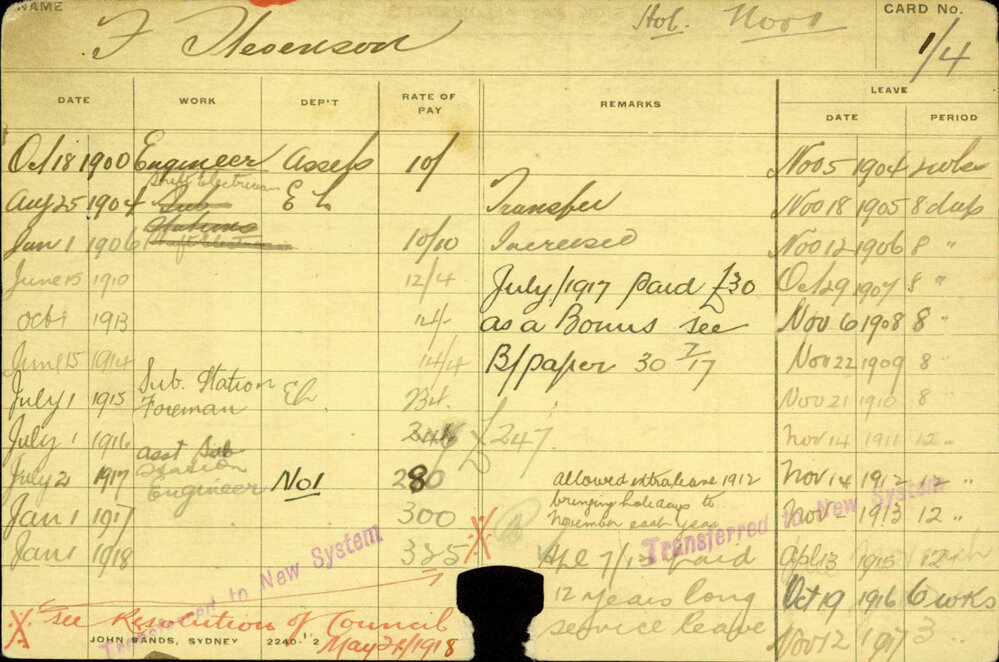 NAME
F Stevenson
Hol. Nov 1
CARD No.
1/4
DATE WORK DEP'T RATE OF PAY REMARKS LEAVE
DATE PERIOD
Oct 18 1900 Engineer Assefs 10/ Nov 5 1904 2 wks
Shift Electrician
Aug 25 1904 Sub E L Transfer Nov 18 1905 8 days
Stations
Jan 1 1906 Shift Electrician 10/10 Increased Nov 12 1906 8 "
June 15 1910 12/4 July/1917 paid £30 Oct 29 1907 8 "
Oct 1 1913 14/- as a Bonus see Nov 6 1908 8 "
June 15 1914 14/4 B/paper 30 7/17 Nov 22 1909 8 "
Sub. Station
July 1 1915 Foreman EL Nov 21 1910 8 "
July 1 1916 £247 Nov 14 1911 12 "
asst Sub
Station
July 2 1917 Engineer No1 280 allowed extra leave 1912 Nov 14 1912 12 "
bringing holidays to
Jan 1 1917 300 November each year Nov 1913 12 "
Jan 1 1918 335 X Apl 7/13 paid Apl 13 1915
12 years long Oct 19 1916 6 wks
service leave Nov 12 1917 3 "
Transferred to New System
Transferred to New System
X see Resolution of Council
May 21/1918
JOHN SANDS, SYDNEY 2240-1'2